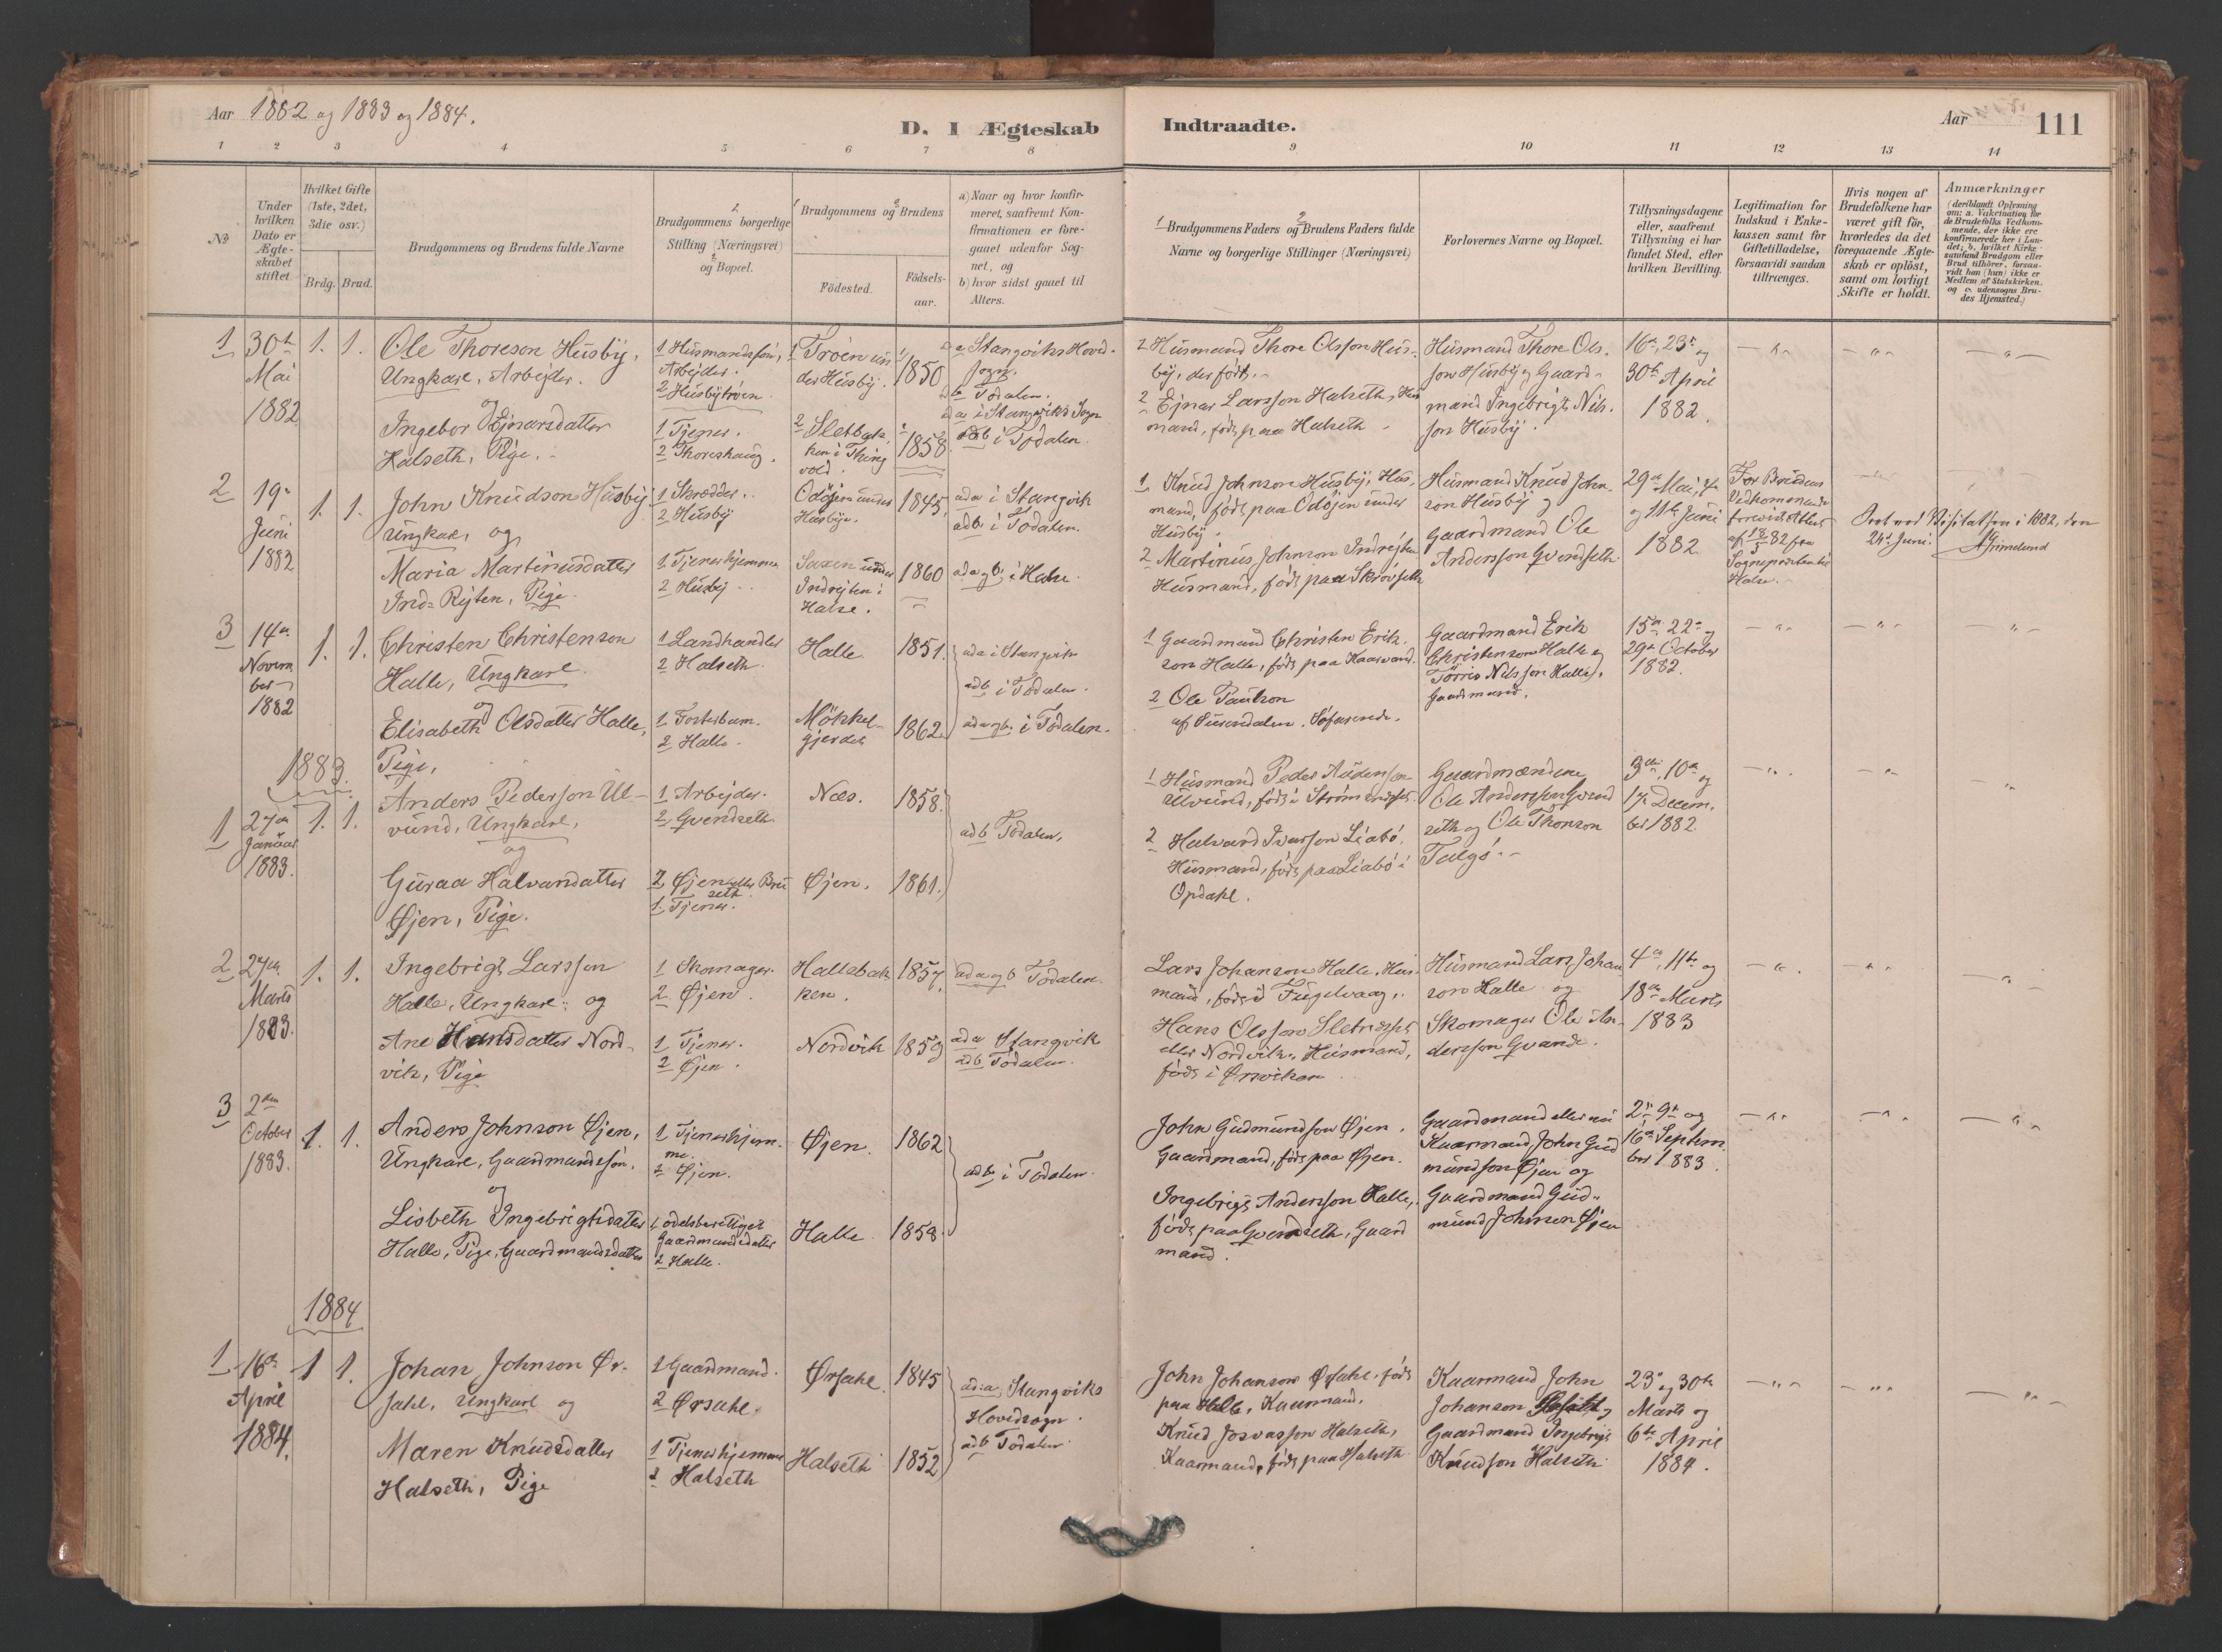 Aar 1882 og 1883 og 1884.
D. I Ægteskab
Indtraadte.
Aar
111
1
2
3
4
5
6
7
8
9
10
11
12
13
14
No
Under hvilken Dato er Ægteskabet stiftet.
Hvilket Gifte (1ste, 2det, 3die osv.)
Brdg.
Brud.
Brudgommens og Brudens fulde Navne
Brudgommens borgerlige Stilling (Næringsvei) og Bopæl.
Brudgommens og Brudens
Födested.
Födselsaar.
a) Naar og hvor konfirmeret, saafremt Konfirmationen er foregaaet udenfor Sognet, og
b) hvor sidst gaaet til Alters.
Brudgommens Faders og Brudens Faders fulde
Navne og borgerlige Stillinger (Næringsvei)
Forlovernes Navne og Bopæl.
Tillysningsdagene eller, saafremt Tillysning ei har fundet Sted, efter hvilken Bevilling.
Legitimation for Indskud i Enkekassen samt for Giftetilladelse, forsaavidt saadan tiltrænges.
Hvis nogen af Brudefolkene har været gift för, hvorledes da det foregaaende Ægteskab er oplöst, samt om lovligt Skifte er holdt.
Anmærkninger
(deriblandt Oplysning om: a. Vakcination for de Brudefolks Vedkommende, der ikke ere konfirmerede her i Landet; b. hvilket Kirkesamfund Brudgom eller Brud tilhörer, forsaavidt han (hun) ikke er Medlem af Statskirken, og c. udensogns Brudes Hjemsted.)
1
30te Mai 1882
1. 1.
Ole Thoreson Husby,
Ungkarl, Arbejder.
og
Ingebor Ejnarsdatter
Halseth, Pige.
1 Husmandssøn,
Arbejder.
2 Husbytrøen.
1 Tjener.
2 Thoreshaug.
1 Trøen un
der Husby.
2 Sletbak
ken i Thing
vold.
1850
1858
a Stangviks Hoved
sogn.
b Todalen.
a i Stangviks Sogn
b i Todalen.
Husmand Thore Olsson Hus-
by, der født.
2 Ejnar Larsson Halseth, Hus
mand, født paa Halseth
Husmand Thore Ols-
son Husby og Gaard-
mand Ingebrigt Nils-
son Husby.
16de, 23de og
30te April
1882.
2
19de
Juni
1882
1. 1.
John Knudson Husby
Ungkarl, og
Maria Martinusdatter
Ind-Rejten, Pige.
1 Skrædder.
2 Husby
1 Tjener hjemme
2 Husby
Odøjen under
Husbye.
Saxen under
Indrejten i
Halse.
1845.
1860
ad a i Stangvik
ad b. i Todalen.
ad a og b. i Halse.
1 Knud Johnson Husby, Hus-
mand, født paa Odøjen under
Husby.
2 Martinus Johnson Indrejten
Husmand, født paa Skrøvseth
Husmand Knud John
son Husby og
Gaardmand Ole
Andersson Gvendseth
29de Mai, 4de
og 11te Juni
1882
For Brudens
Vedkommende
forevist Attest
af 18/5 82 fra
Sognepræsten til
Halse.
Seet ved Visitatsen i 1882, den
24de Juni.
Grimelund
3
14de
Novem
ber
1882
1. 1.
Christen Christenson
Halle, Ungkarl
og
Elisabeth Olsdatter Halle,
Pige,
1 Landhandler
2 Halseth.
1 Fosterbarn.
2 Halle.
Halle
Møkkel-
gjerdet
1851.
1862
ad a i Stangvik
ad b i Todalen.
ad a og b. i Todalen.
1 Gaardmand Christen Erik-
son Halle, født paa Kaarvand.
2 Ole Paulson
af Surendalen. Søfarende.
Gaardmand Erik
Christenson Halle og
Tørris Nilsson Halle,
Gaardmand.
15de 22de og
29de October
1882.
1883.
1
27de
Januar
1883.
1. 1.
Anders Pederson Ul-
vund, Ungkarl,
og
Guraa Halvardatter
Øjen, Pige.
1 Arbejder.
2 Gvendseth.
2 Øjen eller Bru
seth
1. Tjener.
Næs.
Øjen.
1858.
1861.
ad b Todalen,
1 Husmand Peder Audenson
Ulvund, født i
2 Halvard Ivarsson Liabø,
Husmand, født paa Liabø i
Opdahl.
Gaardmændene
Ole Andersson Gvend
seth og Ole Thorson
Talgø.
3die, 10de og
17de Decem-
ber 1882.
2
27de
Marts
1883.
1. 1.
Ingebrigt Larsson
Halle, Ungkarl og
Ane Hansdatter Nord-
vik, Pige
1 Skomager.
2 Øjen.
1 Tjener.
2 Øjen.
Hallebak
ken.
Nordvik
1857.
1859
ad a og b Todalen.
ad a Stangvik
ad b Todalen.
Lars Johanson Halle, Hus-
mand, født i Fugelvaag,
Hans Olsson Sletnesset
eller Nordvik, Husmand,
født i Ørsvikan
Husmand Lars Johan
son Halle og
Skomager Ole An-
dersson Gvande.
4de, 11te og
18de Marts
1883
3
2den
October
1883.
1. 1.
Anders Johnson Øjen,
Ungkarl, Gaardmandssøn.
og
Lisbeth Ingebrigtsdatter
Halle, Pige, Gaardmandsdatter
1 Tjener hjem-
me.
2 Øjen.
1 odelsberettiget
Gaardmandsdatter
2 Halle.
Øjen.
Halle
1862
1858.
ad b i Todalen.
John Gudmundson Øjen,
Gaardmand, født paa Øjen.
Ingebrigt Andersson Halle,
født paa Gvendseth, Gaard
mand.
Gaardmand eller nu
Kaarmand John Gud
mundson Øjen og
Gaardmand Gud-
mund Johnson Øjen
2den 9de og
16de Septem
ber 1883.
1884
1
16de
April
1884.
1 1.
Johan Johnson Ør-
sahl, Ungkarl og
Maren Knudsdatter
Halseth, Pige
1 Gaardmand.
2 Ørsahl.
1 Tjener hjemme
2 Halseth
Ørsahl.
Halseth
1845
1852
ad a Stangviks
Hovedsogn.
ad b Todalen.
John Johanson Ørsahl, født
paa Halle, Kaarmand.
Knud Josvasson Halseth,
Kaarmand, født paa Halseth
Kaarmand John
Johanson og
Gaardmand Ingebrigt
Knudson Halseth
23de og 30te
Marts og
6te April
1884.